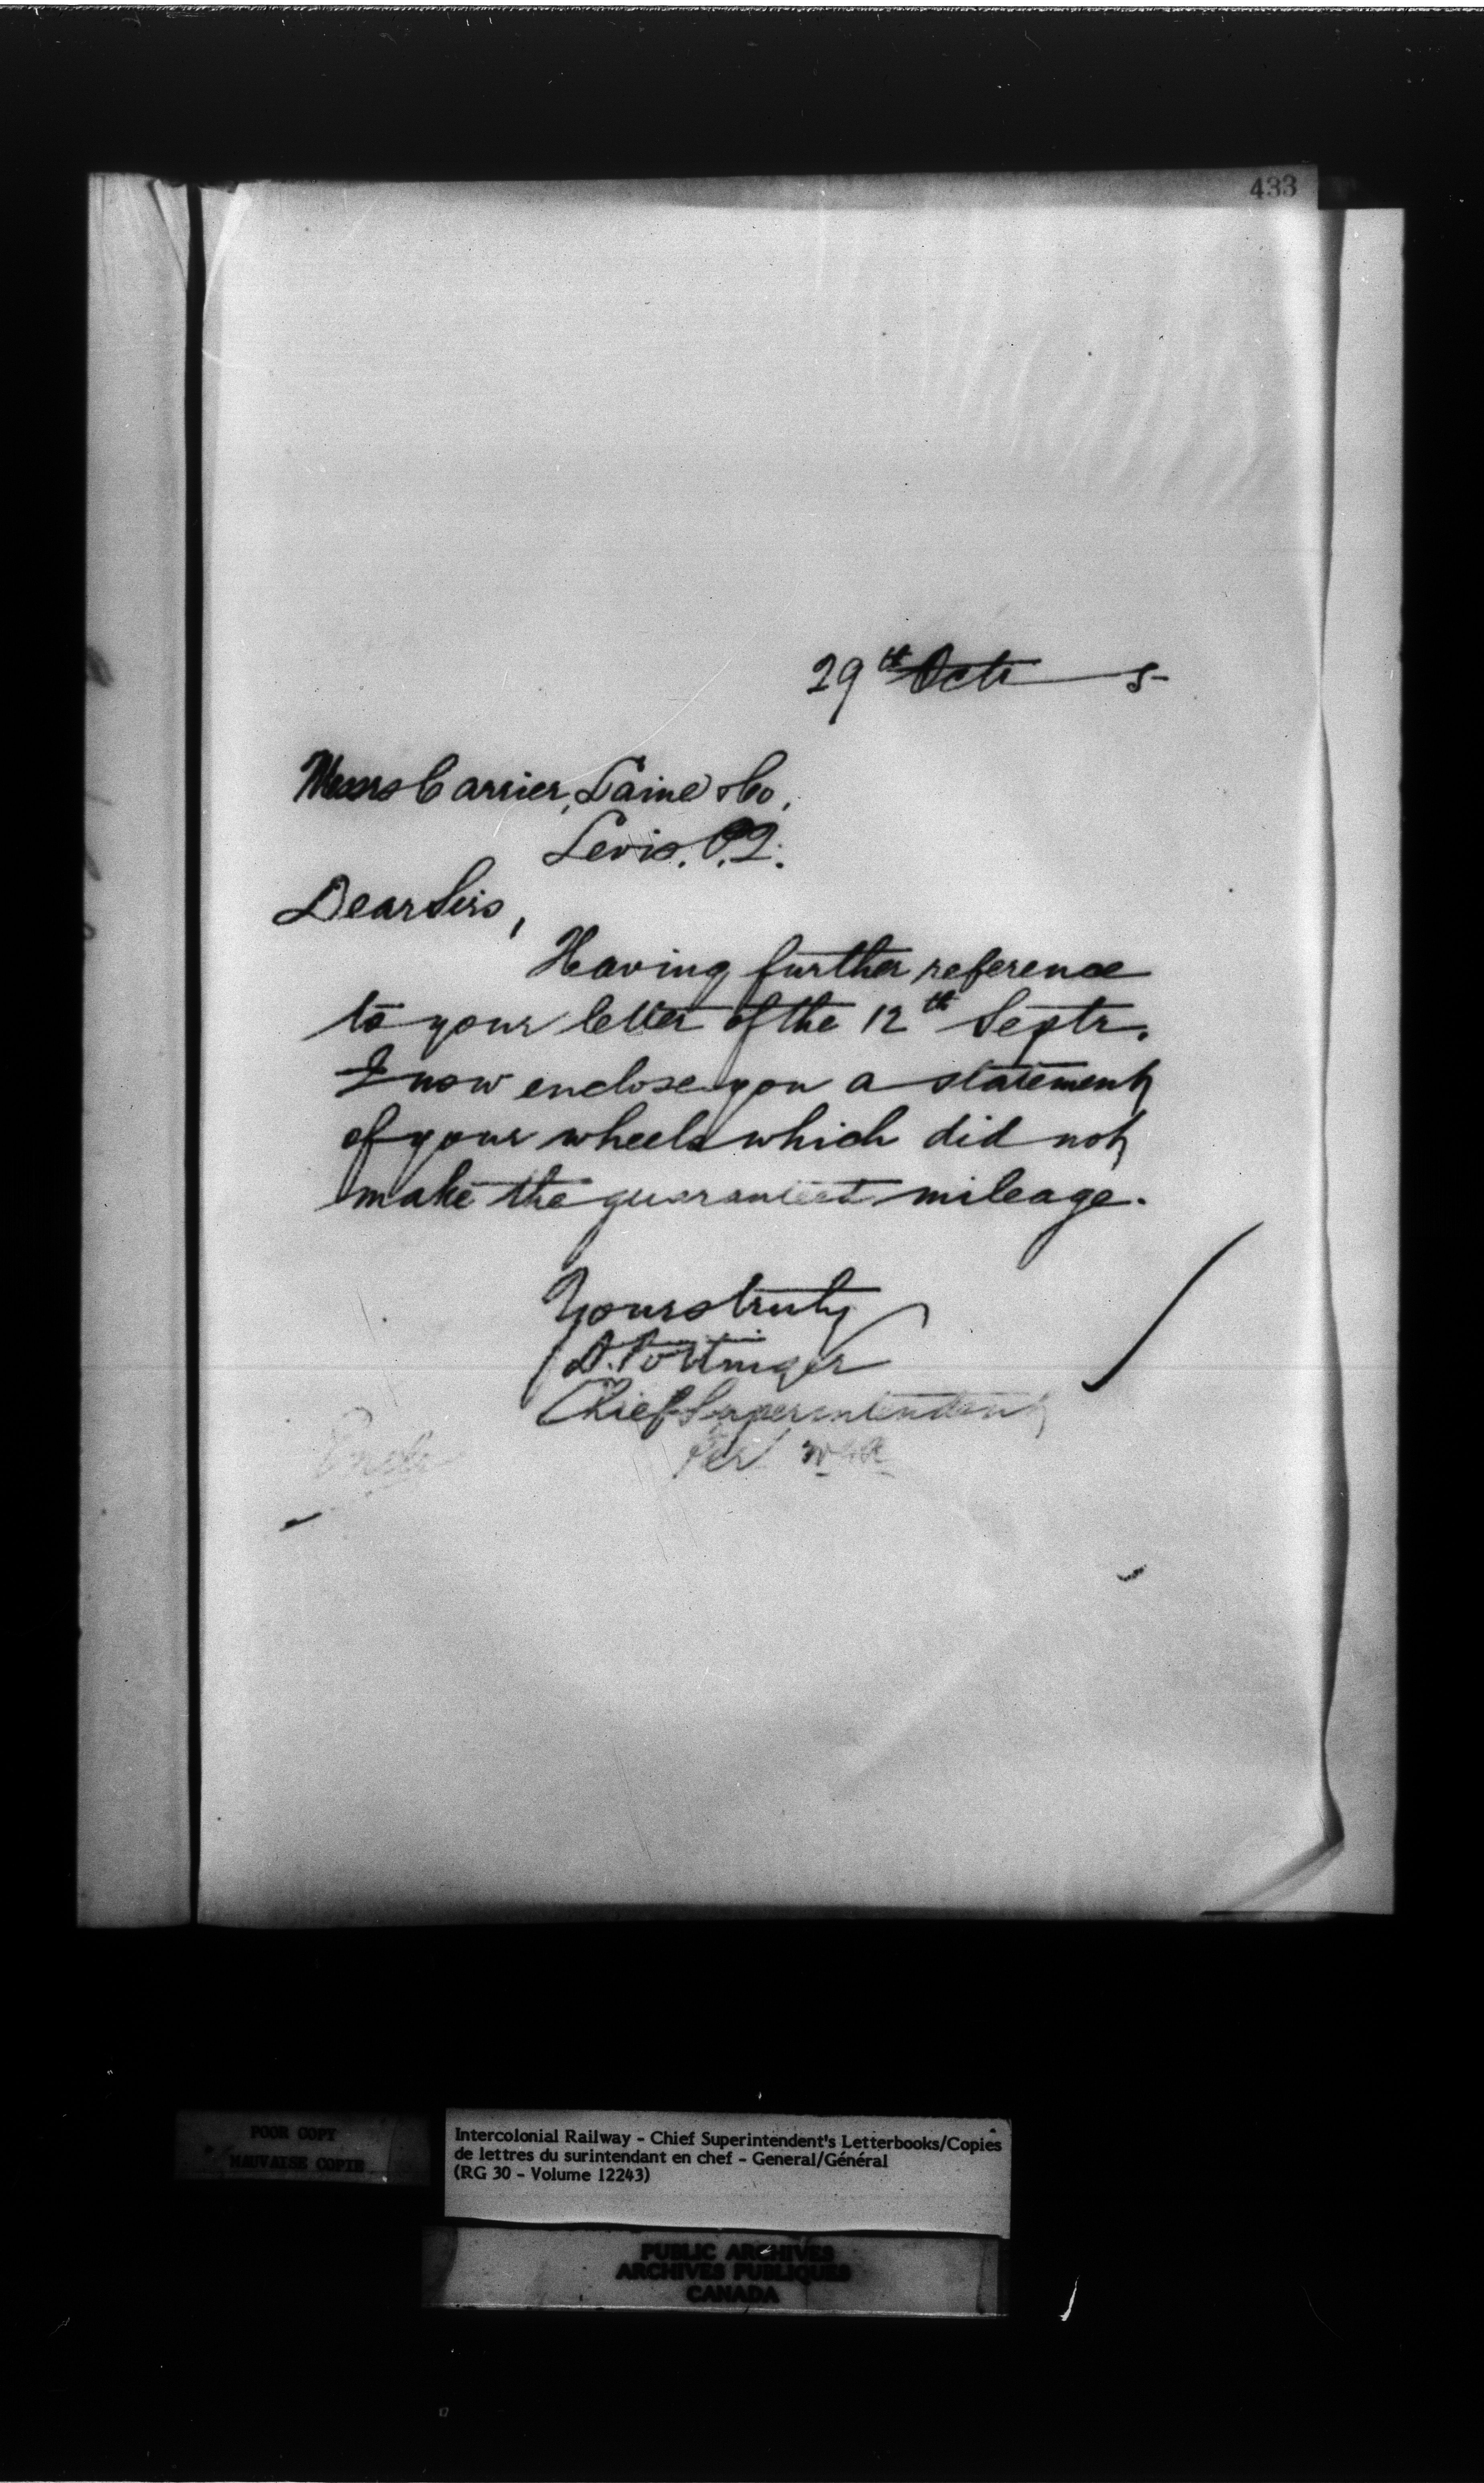 433
29th Octr 5
Messrs Carrier, Laine & Co,
Levis. P.Q.
Dear Sirs,
Having further reference
to your letter of the 12th Septr.
I now enclose you a statement
of your wheels which did not
make the guaranteed mileage.
Yours truly
D. Pottinger
Chief Superintendent
Per
Encls
POOR COPY
MAUVAISE COPIE
Intercolonial Railway - Chief Superintendent's Letterbooks/Copies
de lettres du surintendant en chef - General/Général
(RG 30 - Volume 12243)
PUBLIC ARCHIVES
ARCHIVES PUBLIQUES
CANADA